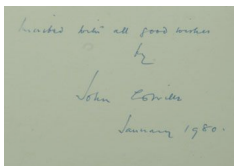 Inscribed with all good wishes
by
John Colville
January 1980.